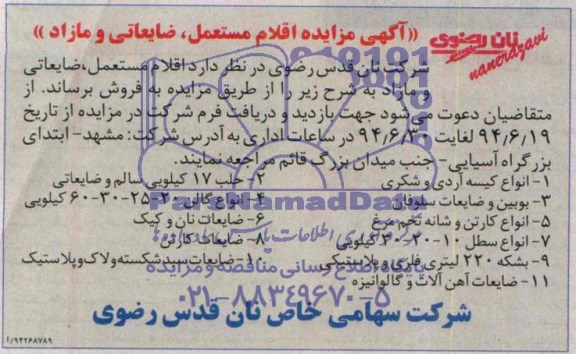 «آگهی مزایده اقلام مستعمل، ضایعاتی و مازاد»
نان رضوی
nanerazavi
شرکت نان قدس رضوی در نظر دارد اقلام مستعمل، ضایعاتی
و مازاد به شرح زیر را از طریق مزایده به فروش برساند. از
متقاضیان دعوت می‌شود جهت بازدید و دریافت فرم شرکت در مزایده از تاریخ
۹۴/۶/۱۹ لغایت ۹۴/۶/۳۰ در ساعات اداری به آدرس شرکت: مشهد- ابتدای
بزرگراه آسیایی- جنب میدان بزرگ قائم مراجعه نمایند.
۱- انواع کیسه آردی و شکری
۲- حلب ۱۷ کیلویی سالم و ضایعاتی
۳- بوبین و ضایعات سلوفان
۴- انواع گالن ۲۰-۲۵-۳۰-۶۰ کیلویی
۵- انواع کارتن و شانه تخم مرغ
۶- ضایعات نان و کیک
۷- انواع سطل ۱۰-۲۰-۳۰ کیلویی
۸- ضایعات کارتن
۹- بشکه ۲۲۰ لیتری فلزی و پلاستیکی
۱۰- ضایعات سبد شکسته ولاک و پلاستیک
۱۱- ضایعات آهن آلات و گالوانیزه
شرکت سهامی خاص نان قدس رضوی
۹۴۲۶۸۷۸۹/ا
ParsNamadData
پایگاه اطلاع رسانی مناقصه و مزایده
۰۲۱-۸۸۳۴۹۶۷۰-۵